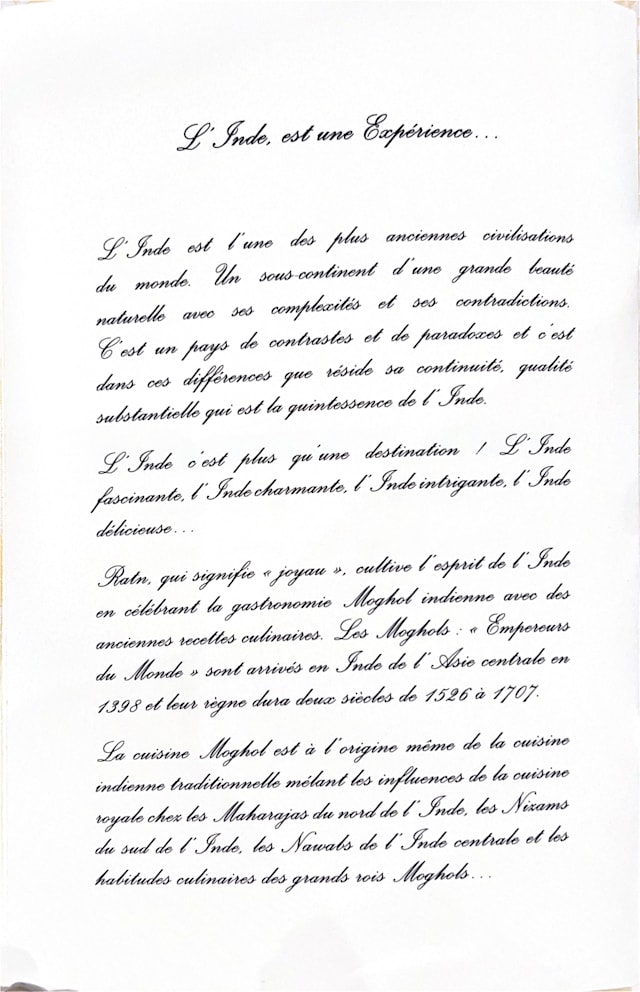 L'Inde, est une Expérience...
L'Inde est l'une des plus anciennes civilisations
du monde. Un sous-continent d'une grande beauté
naturelle avec ses complexités et ses contradictions.
C'est un pays de contrastes et de paradoxes et c'est
dans ces différences que réside sa continuité, qualité
substantielle qui est la quintessence de l'Inde.
L'Inde c'est plus qu'une destination ! L'Inde
fascinante, l'Inde charmante, l'Inde intrigante, l'Inde
délicieuse...
Ratn, qui signifie « joyau », cultive l'esprit de l'Inde
en célébrant la gastronomie Moghol indienne avec des
anciennes recettes culinaires. Les Moghols : « Empereurs
du Monde » sont arrivés en Inde de l'Asie centrale en
1398 et leur règne dura deux siècles de 1526 à 1707.
La cuisine Moghol est à l'origine même de la cuisine
indienne traditionnelle mêlant les influences de la cuisine
royale chez les Maharajas du nord de l'Inde, les Nizams
du sud de l'Inde, les Nawabs de l'Inde centrale et les
habitudes culinaires des grands rois Moghols...